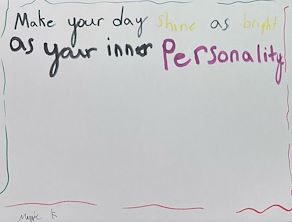 Make your day shine as bright
as your inner Personality
K